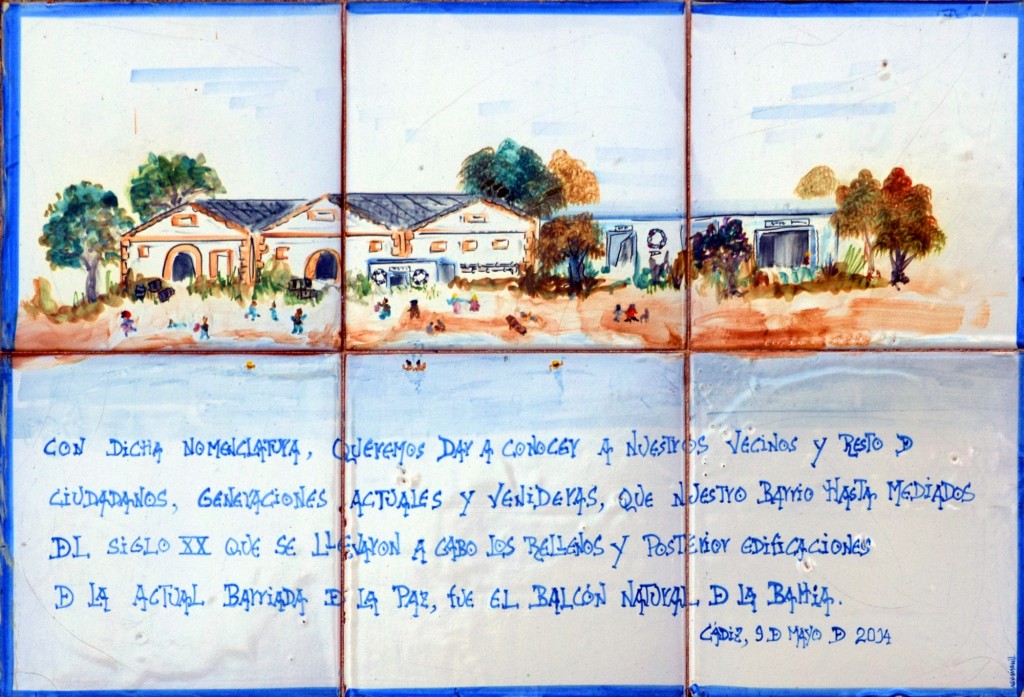 CON DICHA NOMENCLATURA, QUEREMOS DAR A CONOCER A NUESTROS VECINOS Y RESTO D
CIUDADANOS, GENERACIONES ACTUALES Y VENIDERAS, QUE NUESTRO BARRIO HASTA MEDIADOS
DL SIGLO XX QUE SE LLEVARON A CABO LOS RELLENOS Y POSTERIOR EDIFICACIONES
D LA ACTUAL BARRIADA D LA PAZ, FUE EL BALCÓN NATURAL D LA BAHIA.
CÁDIZ, 9 D MAYO D 2014